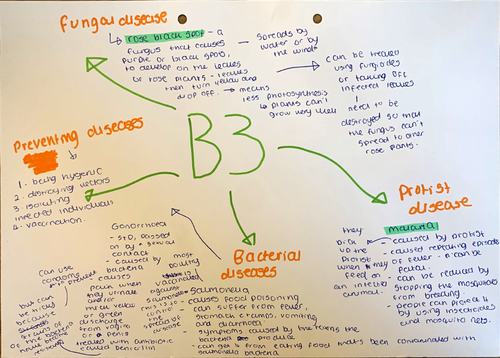 fungal disease
rose black spot - a
fungus that causes
purple or black spots,
to develop on the leaves
or rose plants - leaves
then turn yellow and
drop off. → means
less photosynthesis
↳ plants can't
grow very well
spreads by
water or by
the winds
can be treated
using fungicides
or taking off
infected leaves
need to be
destroyed so that
the fungus can't
spread to other
rose plants.
B3
Preventing diseases
1. being hygenic
2. destroying vectors
3. isolating
infected individuals
4. vaccination.
Protist
disease
malaria
they
the
protist
when they
feed on
an infected
animal.
caused by protist
caused repeating episodes
of fever - it can be
fatal.
can be reduced by
stopping the mosquitos
from breeding
people can protect it
by using insecticides
and mosquito nets.
Bacterial
diseases
Salmonella
causes food poisoning
can suffer from fever,
stomach cramps, vomiting
and diarrhoea
symptoms caused by the toxins the
bacteria produce
can get it from eating food that's been contaminated with
salmonella bacteria
most
poultry
is
vaccinated
against
salmonella
control
spread of
disease
Gonorrhoea
- STD, passed
on by sexual
contact
- caused by
bacteria
causes
pain when
they urinate
and/or
thick yellow
or green
discharge
from vagina
or penis
treated with antibiotic
called penicillin
can use
to
but can
be tricky
because
of the body